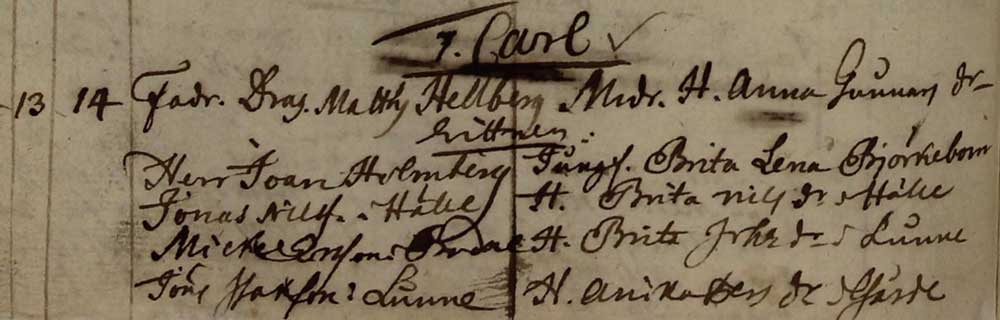 7. Carl ✓
13 14 Fadr. Drag. Matths Hellberg Mdr. H. Anna Gunnars dr
Wittnen:
Herr Joan Holmberg Jungf. Brita Lena Björkebom
Jonas Nilss. i Hälle H. Brita Nils dr i Hälle
Mickel H. Brita i Lunne
Jöns i Lunne H. Anika Pers dr i